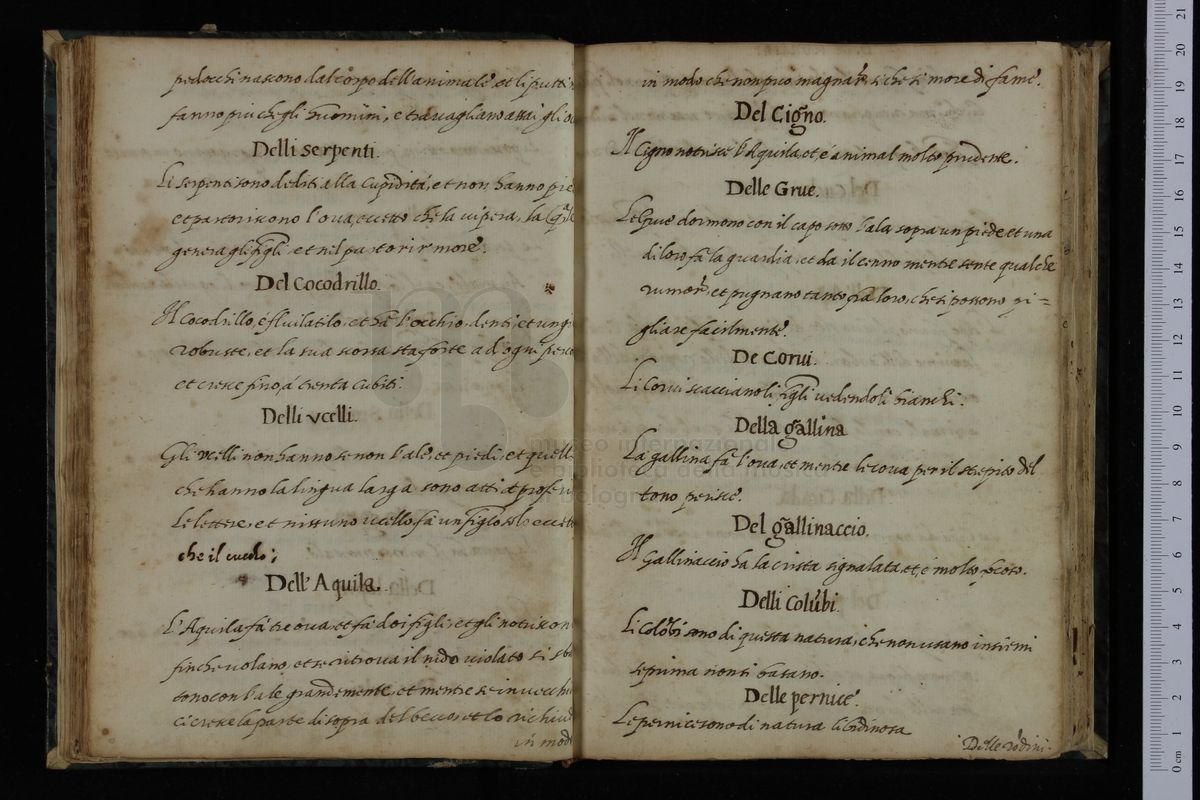 pedocchi nascono dal corpo dell'animale, et li putti
fanno piu che gli huomini, e travagliano assai gli
Delli serpenti.
Li serpenti sono dediti alla Cupidità, et non hanno pie
et partoriscono l'ova, eccetto che la vipera, la
genera gli figli, et nel partorir more.
Del Cocodrillo.
Il Cocodrillo, é fluilatilo, et hà l'occhio, denti, et ungi
robuste, et la sua scorsa sta forte ad ogni perco
et cresce fino, á trenta Cubiti.
Delli vcelli.
Gli vcelli non hanno se non l'ale, et piedi, et quelli
che hanno la lingua larga sono atti á proferi
le lettere, et nissuno vcello fá un figlo solo eccett
che il cuculo;
Dell'Aquila.
L'Aquila fá tre ova, et fá doi figli, et gli notriscon
finche volano, et se ritrova il nido violato si sba
tono con l'ale grandemente, et mentre se invecchi
ci cresce la parte di sopra del becco, et lo richiud
in mod
in modo che non può magnare si che si more di fame.
Del Cigno.
Il Cigno notrisce l'Aquila, et, é animal molto prudente.
Delle Grue.
Le Grue dormono con il capo sotto l'ala, sopra un piede, et una
di loro fá la guardia, et da il cenno mentre sente qualche
rumore, et pugnano tanto fra loro, che si possono pi=
gliare facilmente.
De Corui.
Li Corui scacciano li figli vedendoli bianchi.
Della gallina
La gallina fá l'ova, et mentre le cova per il strepito del
tono perisce.
Del gallinaccio.
Il Gallinaccio ha la crista signalata, et, é molto
Delli Colúbi.
Li Colóbi sono di questa natura, che non usano insiemi
se prima non si basano.
Delle pernice.
Le pernice sono di natura libidinosa
Delle ródini.
museo internazionale
e biblioteca della musica
di bologna
0 cm 1 2 3 4 5 6 7 8 9 10 11 12 13 14 15 16 17 18 19 20 21